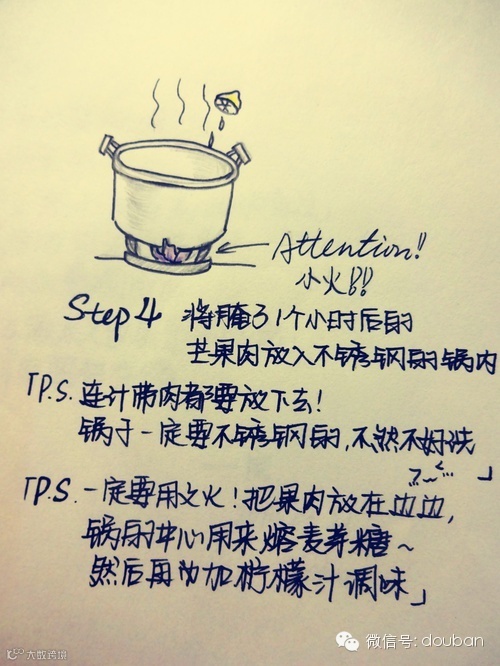 Attention!!
小火!!
Step 4 将腌了1个小时后的
芒果肉放入不锈钢的锅内
「P.S. 连汁带肉都要放下去!
锅子一定要不锈钢的,不然不好洗
」
「P.S. 一定要用文火!把果肉放在边边,
锅的中心用来熔麦芽糖~
然后再加柠檬汁调味」
大数跨境
微信号: douban